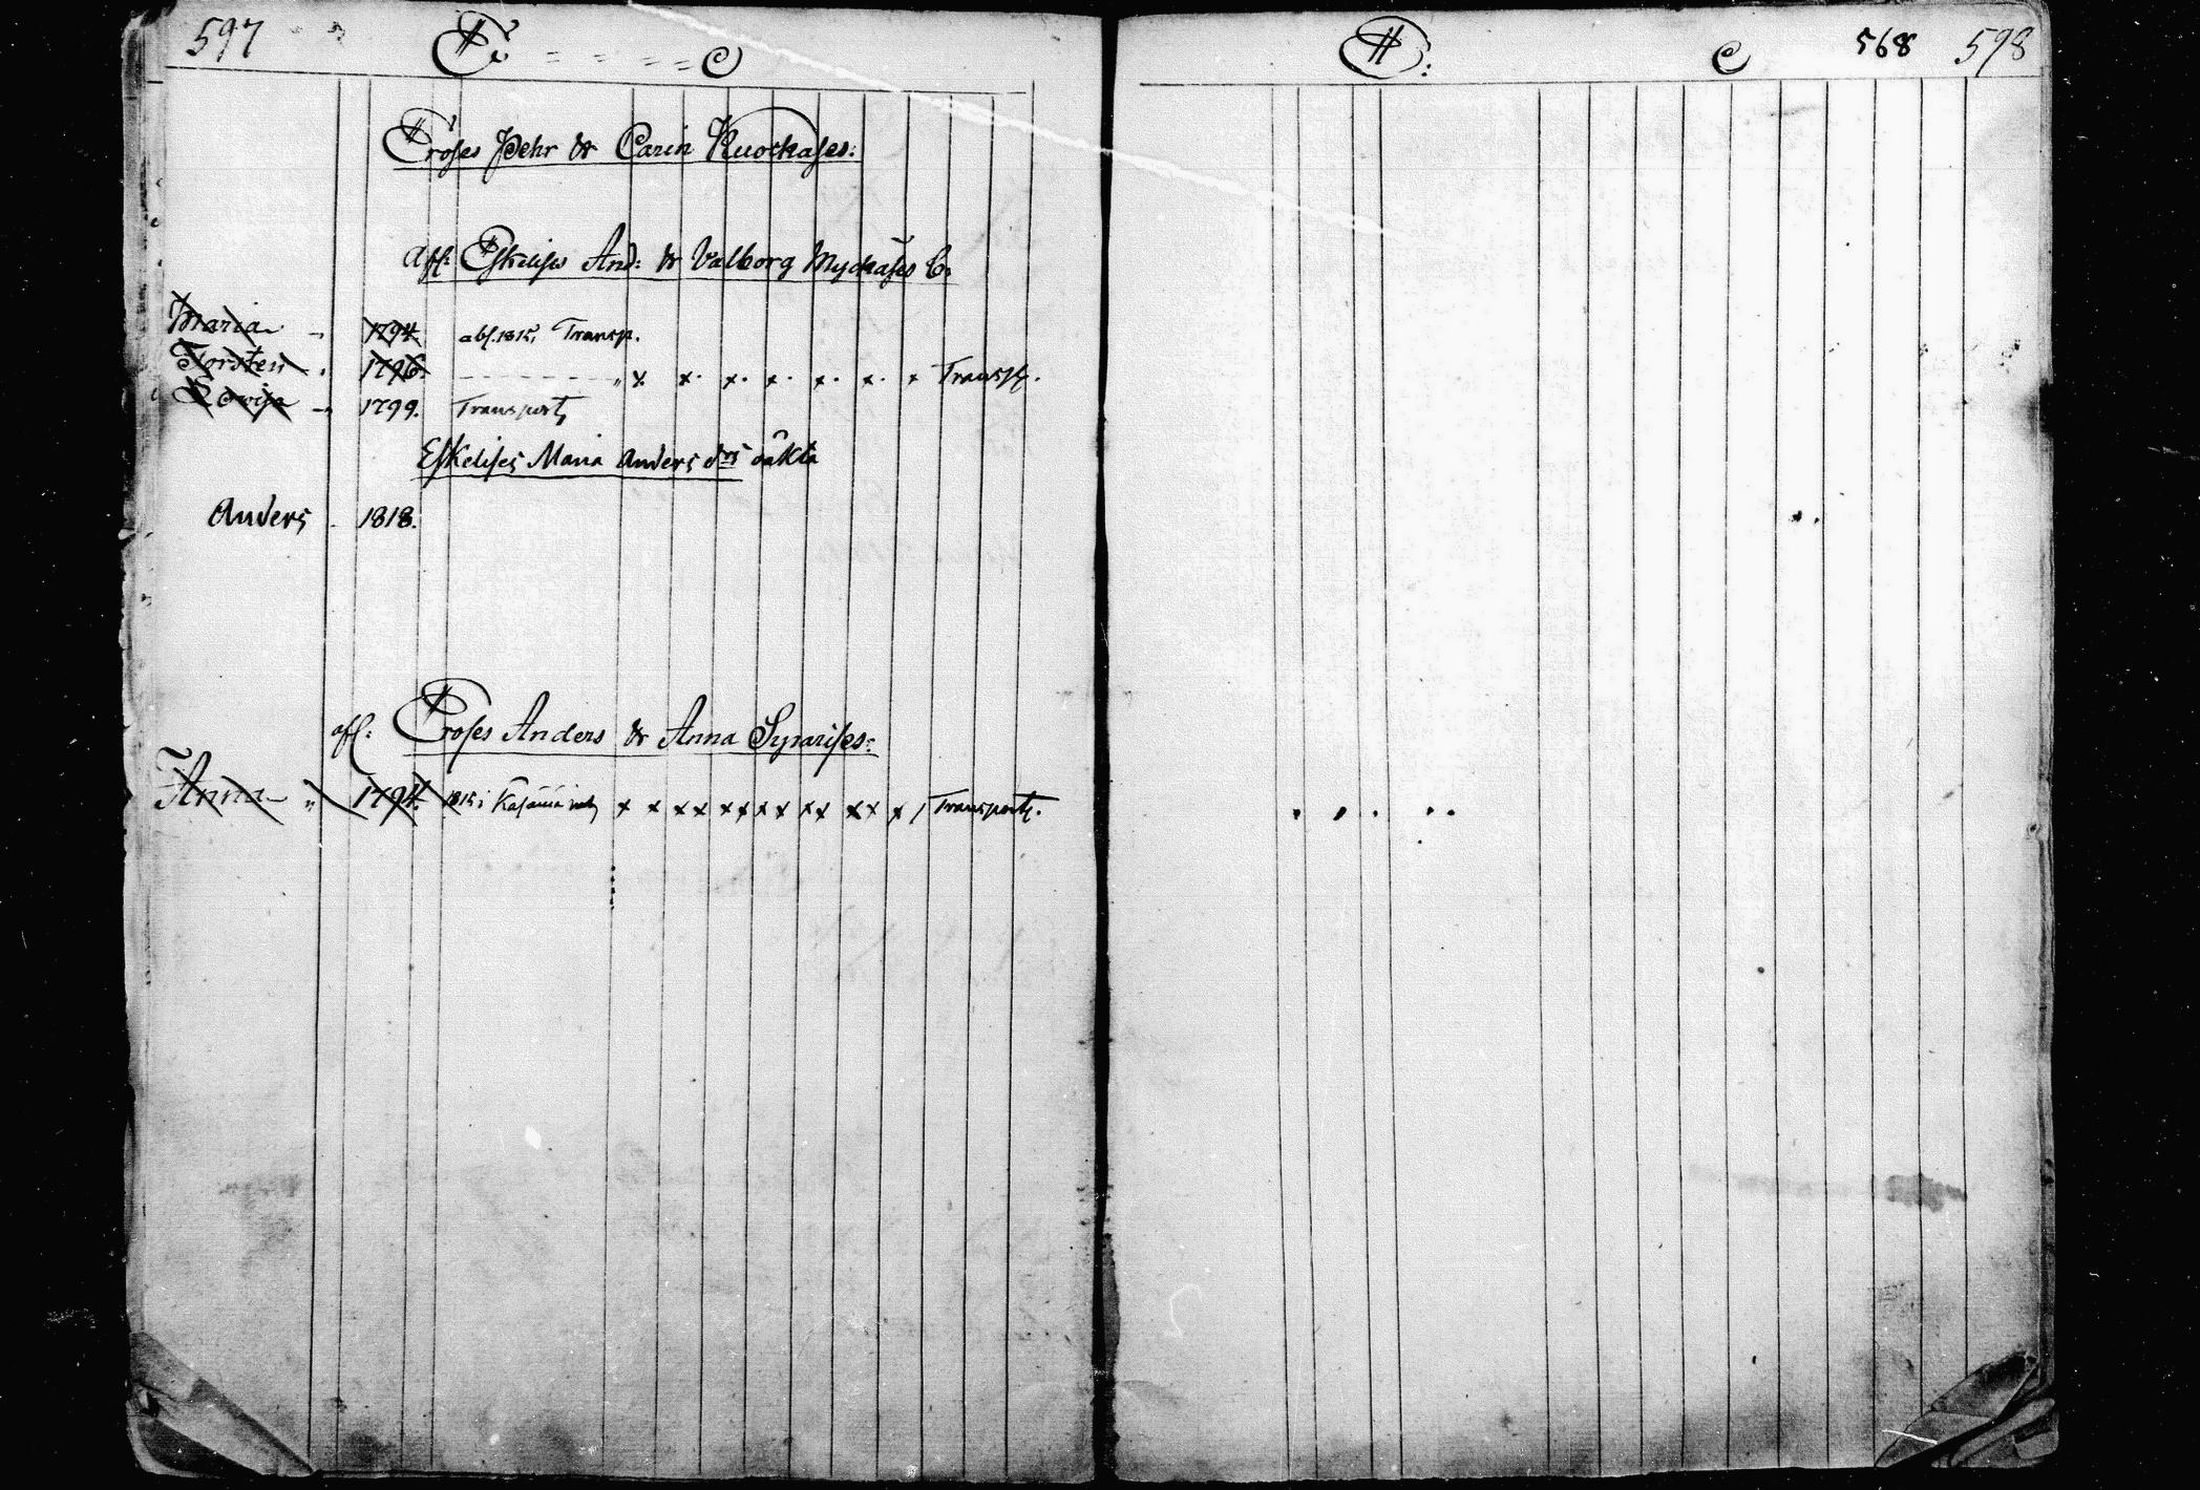 597 E. = = = = C
Eroses Pehr & Carin Kuockases:
afl: Eskelises And: & Valborg Myckäses b.
Maria - 1794. abs. 1815, Transp.
Torsten . 1796. - - - - - - " x x. x. x. x. x. x Transp.
Lowisa - 1799. Transport,
Eskelises Maria Anders drs oäkta
Anders . 1818.
afl: Eroses Anders & Anna Synarises:
Anna - " 1794. 1815 i x x x x x x x x x x x x x / Transport.
E: C 568 598